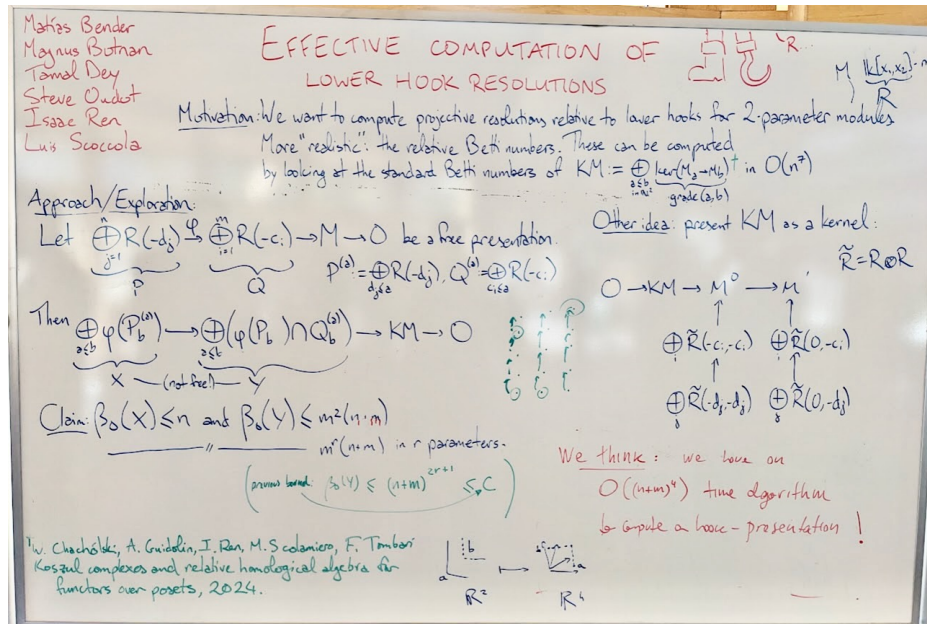 Matías Bender
Magnus Botnan
Tamal Dey
Steve Oudot
Isaac Ren
Luis Scoccola
EFFECTIVE COMPUTATION OF
LOWER HOOK RESOLUTIONS
"R...
M
lk[x₁,x₂]-m
R
Motivation: We want to compute projective resolutions relative to lower hooks for 2-parameter modules
More "realistic": the relative Betti numbers. These can be computed
by looking at the standard Betti numbers of KM := ⊕ ker(Mₐ→M_b)† in O(n⁷)
a≤b
grade(a,b)
Approach/Exploration:
Let ⊕ⁿ_{j=1} R(-d_j) →^φ ⊕^m_{i=1} R(-c_i) → M → 0 be a free presentation.
P
Q
P^(a) = ⊕_{d_j≤a} R(-d_j), Q^(a) = ⊕_{c_i≤a} R(-c_i)
Then ⊕_{a≤b} φ(P_b^(a)) → ⊕_{a≤b} (φ(P_b) ∩ Q_b^(a)) → KM → 0
X — (not free!) — Y
Claim: β₀(X) ≤ n and β₀(Y) ≤ m²(n+m)
〃 m^r(n+m) in r parameters.
(previous bound: β₀(Y) ≤ (n+m)^{2r+1} ≤ C)
Other idea: present KM as a kernel:
R̃ = R⊗R
0 → KM → M⁰ → M'
⊕_i R̃(-c_i,-c_i) ⊕_i R̃(0,-c_i)
⊕_j R̃(-d_j,-d_j) ⊕_j R̃(0,-d_j)
We think: we have an
O((n+m)⁴) time algorithm
to compute a hook-presentation!
†W. Chachólski, A. Guidolin, I. Ren, M. Scolamiero, F. Tombari
Koszul complexes and relative homological algebra for
functors over posets, 2024.
a b ↦ a
R² R⁴